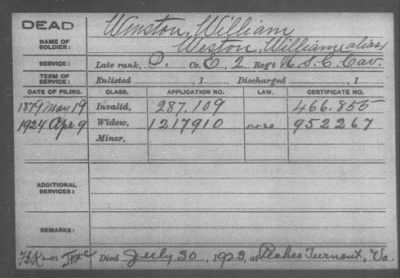 DEAD
NAME OF SOLDIER: Winston, William
Weston, William (alias)
SERVICE: Late rank, P. Co. E, 2 Reg't U.S.C. Cav.
TERM OF SERVICE: Enlisted , 1 Discharged , 1
DATE OF FILING. CLASS. APPLICATION NO. LAW. CERTIFICATE NO.
1879 May 19 Invalid, 287.109 466.855
1924 Apr 9 Widow, 1217910 952267
Minor,
ADDITIONAL SERVICES:
REMARKS:
Died July 30, 1923, at Peakes Turnout, Va.